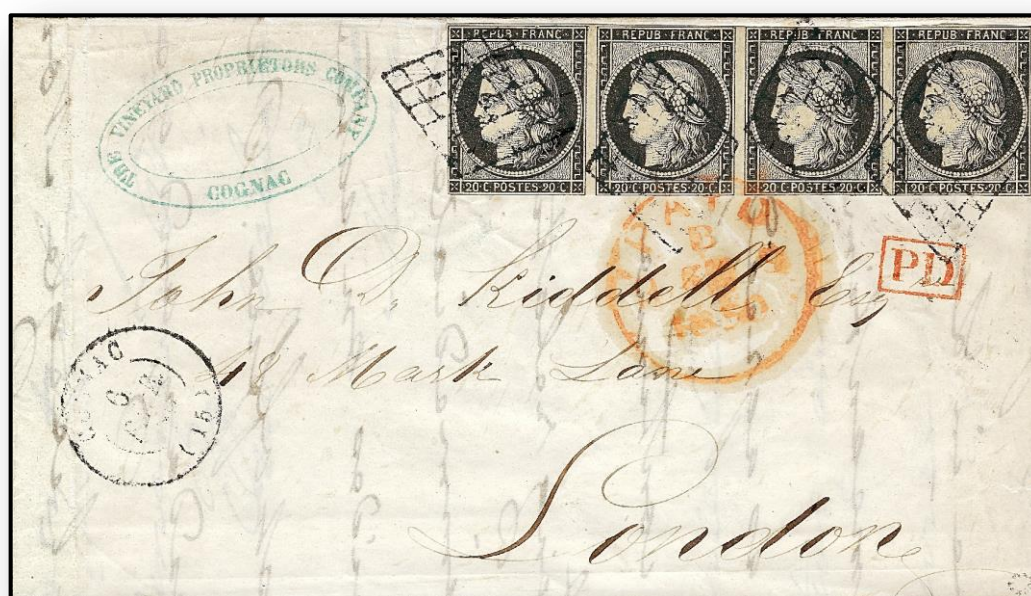 THE VINEYARD PROPRIETORS COMPANY
COGNAC
REPUB·FRANC
20·C POSTES·20·C
REPUB·FRANC
20·C POSTES·20·C
REPUB·FRANC
20·C POSTES·20·C
REPUB·FRANC
20·C POSTES·20·C
PAID
B
1850
PD
John D. Riddell Esqre
42 Mark Lane
London
COGNAC
6
(15)